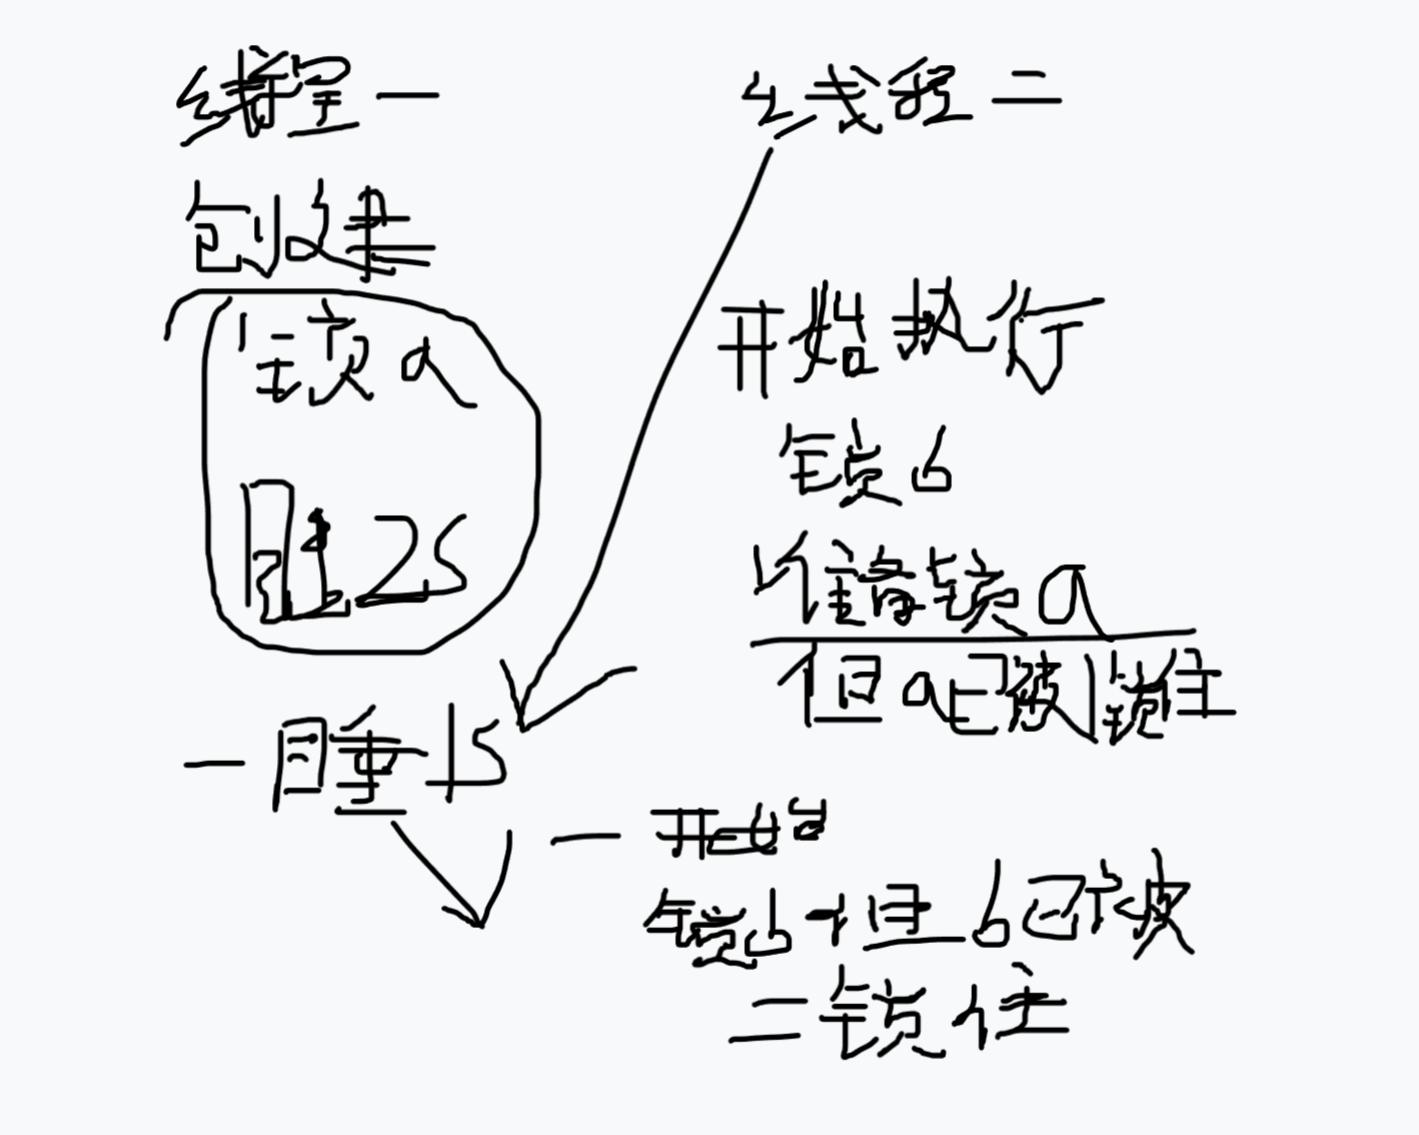 线程一
创建
锁a
睡2s
一睡1s
线程二
开始执行
锁b
准备锁a
但a已被锁住
一开始
锁b但b已被
二锁住